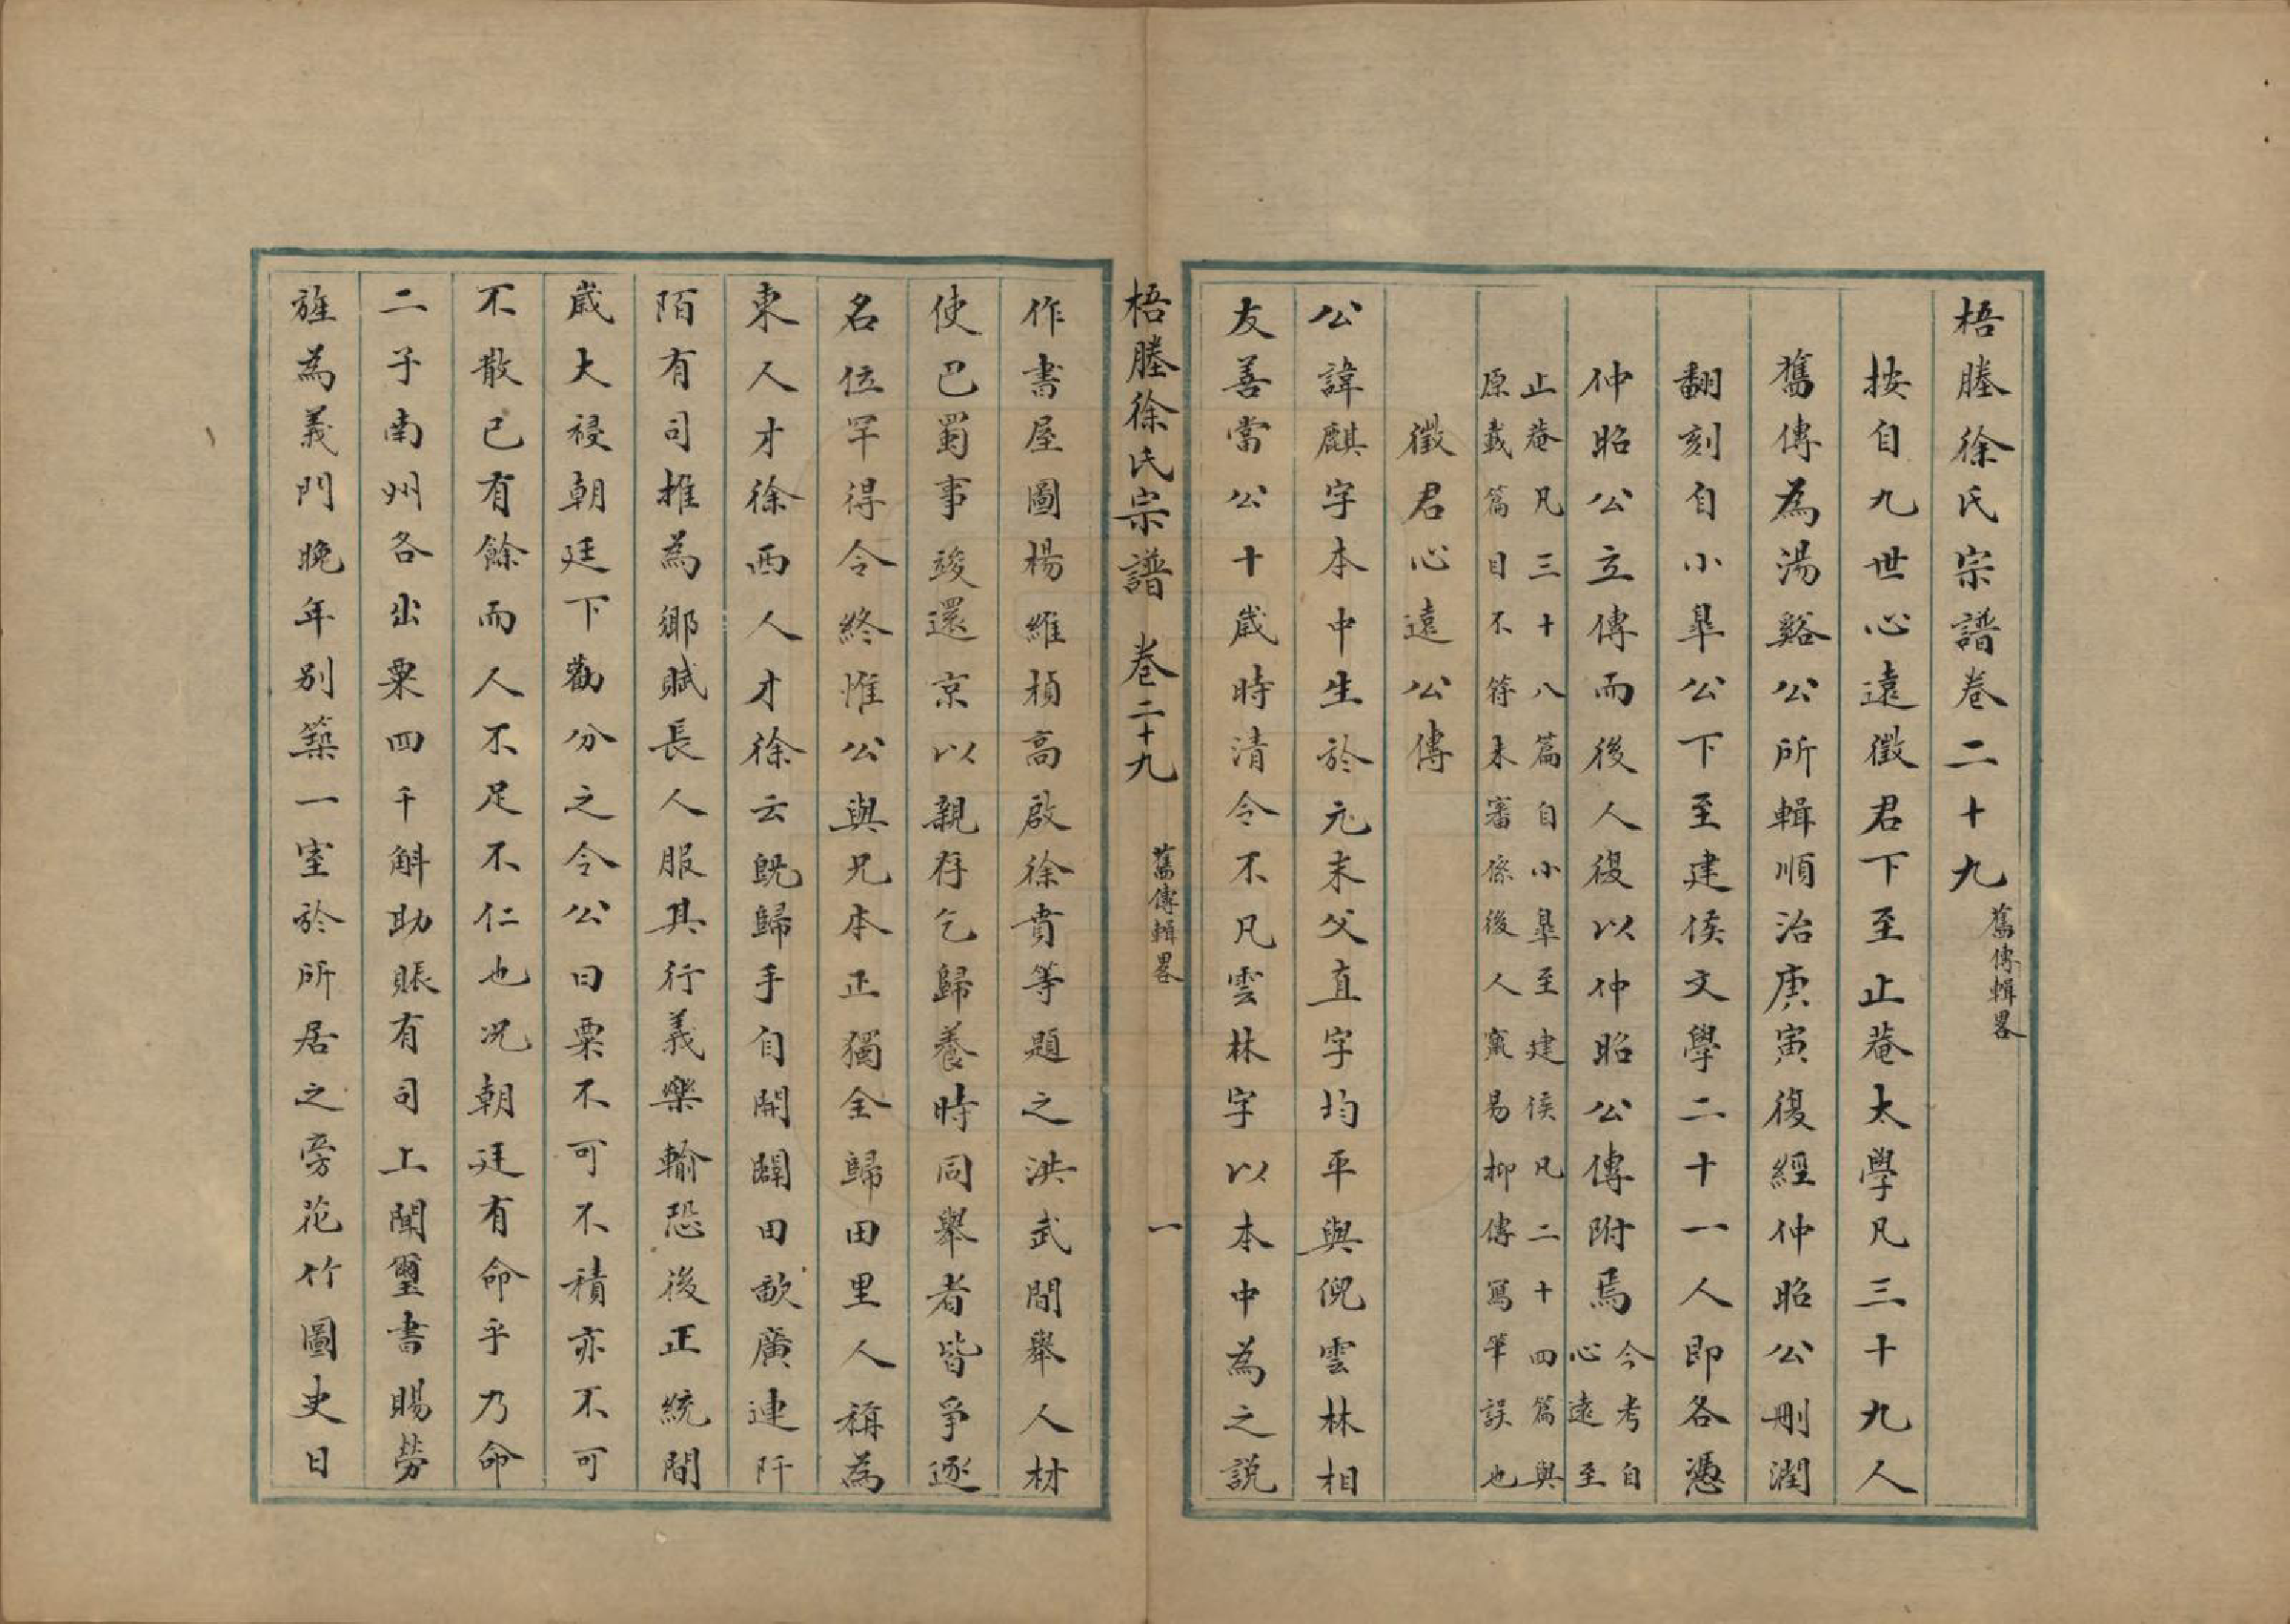 梧塍徐氏宗譜卷二十九 舊傳輯畧
按自九世心遠徵君下至止菴太學凡三十九人
舊傳為湯谿公所輯順治庚寅復經仲昭公刪潤
翻刻自小臯公下至建侯文學二十一人即各憑
仲昭公立傳而後人復以仲昭公傳附焉 今考自
心遠至
止菴凡三十八篇自小臯至建侯凡二十四篇與
原載篇目不符未審係後人竄易抑傳寫筆誤也
徵君心遠公傳
公諱麒字本中生於元末父直字均平與倪雲林相
友善當公十歲時清令不凡雲林字以本中為之說
梧塍徐氏宗譜 卷二十九 舊傳輯畧 一
作書屋圖楊維楨高啟徐賁等題之洪武間舉人材
使巴蜀事竣還京以親存乞歸養時同舉者皆爭逐
名位罕得令終惟公與兄本正獨全歸田里人稱為
東人才徐西人才徐云既歸手自開闢田畝廣連阡
陌有司推為鄉賦長人服其行義樂輸恐後正統間
歲大祲朝廷下勸分之令公曰粟不可不積亦不可
不散已有餘而人不足不仁也况朝廷有命乎乃命
二子南州各出粟四千斛助賑有司上聞璽書賜勞
旌為義門晚年別築一室於所居之旁花竹圖史日